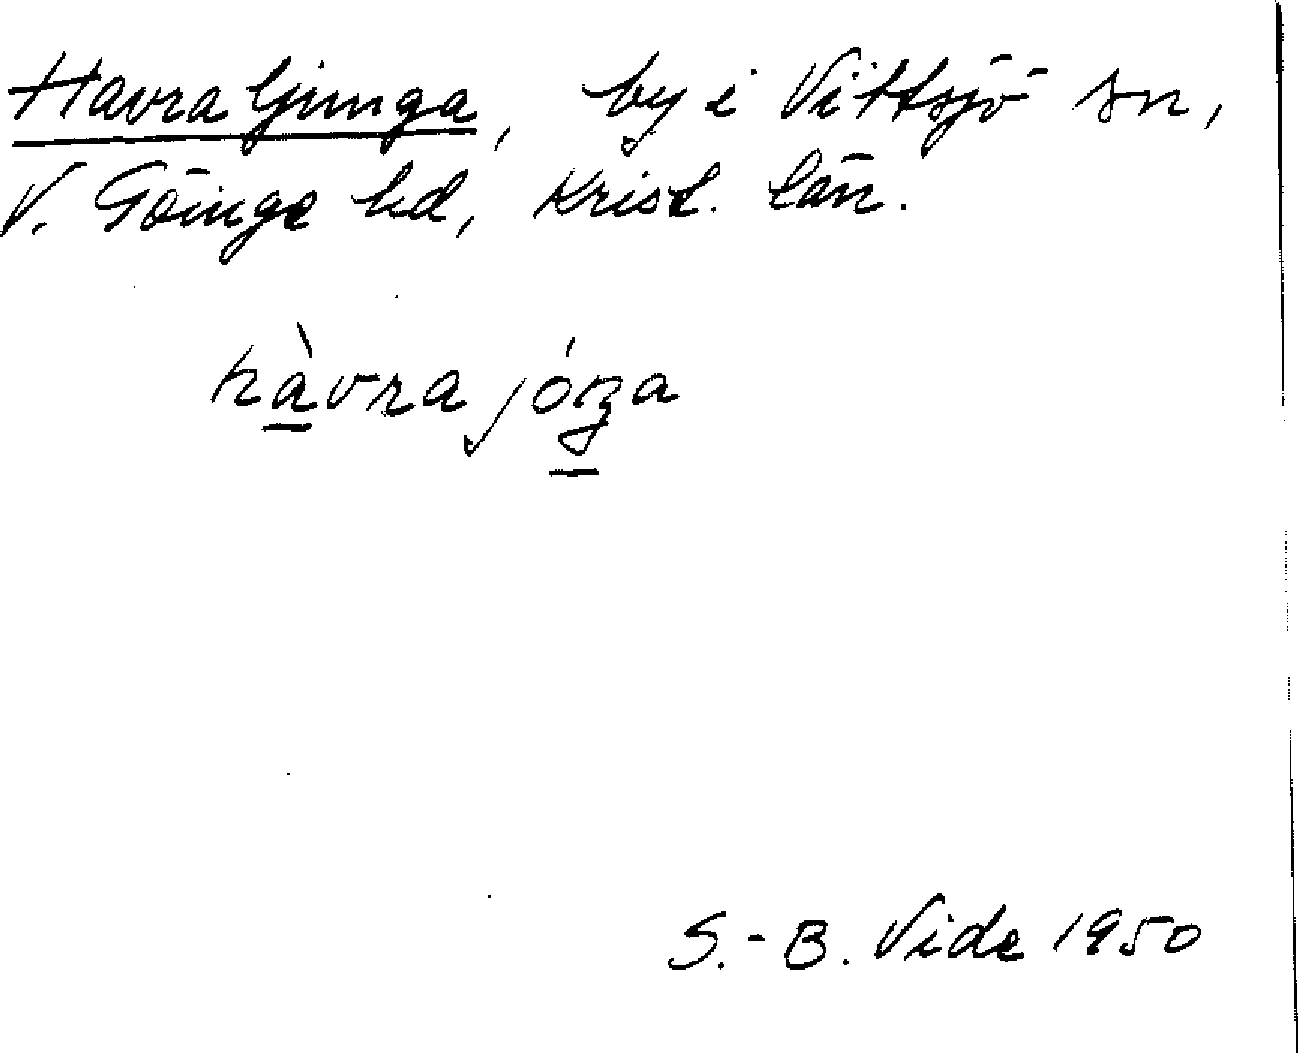 Havraljunga, by i Vittsjö sn,
V. Göinge hd, Krist. län.
hàvrajóŋa
S.-B. Vide 1950